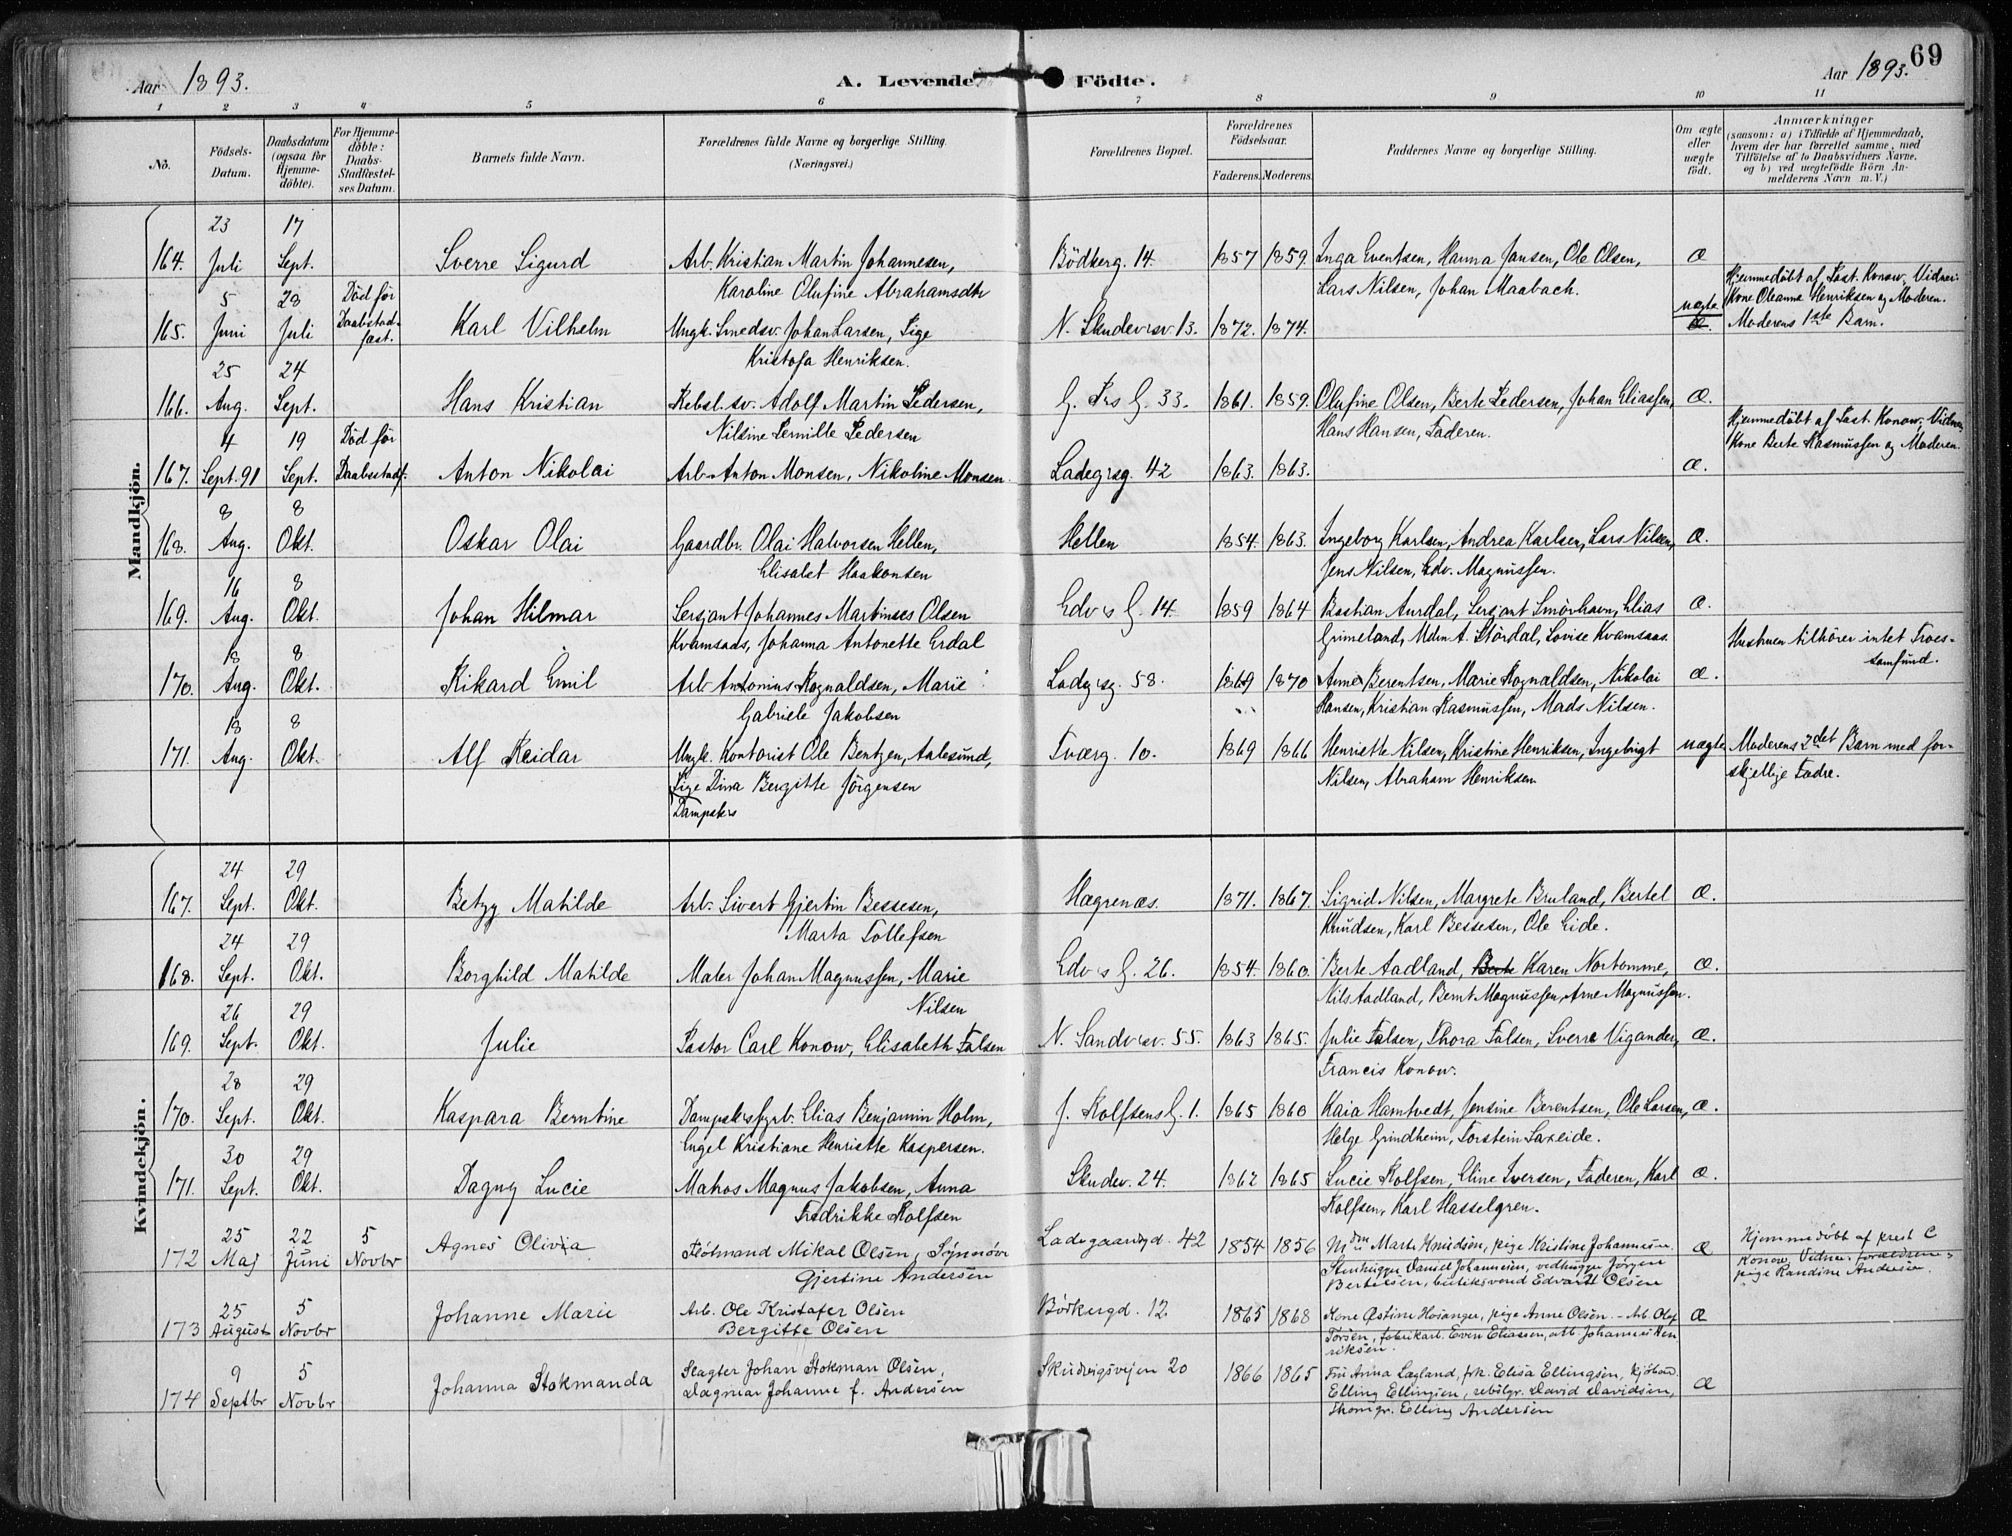 69
Aar 1893.
A. Levende Födte.
Aar 1893.
1 2 3 4 5 6 7 8 9 10 11
No.
Födsels-Datum.
Daabsdatum (ogsaa for Hjemme-döbte).
For Hjemme-döbte: Daabs-Stadfæstel-ses Datum.
Barnets fulde Navn.
Forældrenes fulde Navne og borgerlige Stilling. (Næringsvei.)
Forældrenes Bopæl.
Forældrenes Födselsaar.
Faderens. Moderens.
Faddernes Navne og borgerlige Stilling.
Om ægte eller uægte födt.
Anmærkninger
(saasom: a) i Tilfælde af Hjemmedaab, hvem der har forrettet samme, med Tilföielse af to Daabsvidners Navne, og b) ved uægtefödte Börn An-melderens Navn m. V.)
Mandkjön.
164. 23 Juli 17 Sept. Sverre Sigurd Arb. Kristian Martin Johannesen, Bödkerg. 14. 1857 1859. Inga Evertsen, Hanna Jansen, Ole Olsen, Æ
Karoline Olufine Abrahamsdtr Lars Nilsen, Johan Maabach.
165. 5 Juni 23 Juli Död för Daabstad-fæst. Karl Vilhelm Ungk. Smedsv. Johan Larsen, Pige N. Skudevsv. 13. 1872. 1874. uægte Hjemmedöbt af Past. Konow, Vidner: Kone Oleanne Henriksen og Moderen. Moderens 1ste Barn.
Kristofa Henriksen.
166. 25 Aug. 24 Sept. Hans Kristian Rebsl.sv. Adolf Martin Pedersen, G. Prs G. 33. 1861. 1859. Olufine Olsen, Berte Pedersen, Johan Eliassen, Æ.
Nilsine Pernille Pedersen Hans Hansen, Faderen.
167. 4 Sept. 91 19 Sept. Död för Daabsstadf. Anton Nikolai Arb. Anton Monsen, Nikoline Monsen. Ladegrsg. 42 1863. 1863. Æ. Hjemmedöbt af Past. Konow, Vidner, Kone Berte Rasmussen og Moderen.
168. 8 Aug. 8 Okt. Oskar Olai Gaardbr. Olai Halvorsen Hellen, Hellen 1854. 1863. Ingeborg Karlsen, Andrea Karlsen, Lars Nilsen, Æ.
Elisabet Haakonsen Jens Nilsen, Edv. Magnussen.
169. 16 Aug. 8 Okt. Johan Hilmar Sersjant Johannes Martinses Olsen Edvrs G. 14. 1859 1864 Bastian Aurdal, Sersjant Smörhavn, Elias Æ.
Kvamsads, Johanna Antonette Erdal Grimeland, Mdm A. Stördal, Lovise Kvamsaas.
170. 18 Aug. 8 Okt. Rikard Emil Arb. Antonius Ragnaldsen, Marie Ladegrsg. 58. 1869 1870 Anne Berentsen, Marie Rognaldsen, Nikolai Æ. Hustruen tilhörer intet Troes-samfund.
Gabriele Jakobsen Hansen, Kristian Rasmussen, Mads Nilsen.
171. 18 Aug. 8 Okt. Alf Reidar Ungk. Kontorist Ole Bentzen, Aalesund, Tværg. 10. 1869 1866 Henriette Nilsen, Kristine Henriksen, Ingebrigt uægte Moderens 2det Barn med for-skjellige Fædre.
Pige Dina Bergitte Jörgensen Nilsen, Abraham Henriksen
Dampskrs
Kvindekjön.
167. 24 Sept. 29 Okt. Betzy Matilde Arb. Sivert Gjertin Bessesen, Hægrenæs. 1871. 1867. Sigrid Nilsen, Margrete Bruland, Bertel Æ.
Marta Tollefsen Knudsen, Karl Bessesen, Ole Eide.
168. 24 Sept. 29 Okt. Borghild Matilde Maler Johan Magnussen, Marie Edvrs G. 26. 1854. 1860. Berte Aadland, Berte Karen Nortomme, Æ.
Nilsen Nils Aadland, Bernt Magnussen, Arne Magnussen.
169. 26 Sept. 29 Okt. Julie Pastor Carl Konow, Elisabeth Falsen N. Sandvsv. 55. 1863 1865. Julie Falsen, Thora Falsen, Sverre Vigander, Æ.
Francis Konow.
170. 28 Sept. 29 Okt. Kaspara Berntine Dampskrsfyrb. Elias Benjamin Holm, J. Rolfsens G. 1. 1865 1860 Kaia Hamtvedt, Jensine Berentsen, Ole Larsen, Æ.
Engel Kristiane Henriette Kaspersen. Helge Grindheim, Torstein Saxeide.
171. 30 Sept. 29 Okt. Dagny Lucie Matros Magnus Jakobsen, Anna Skudev. 24. 1862 1865 Lucie Rolfsen, Eline Iversen, Faderen, Karl Æ.
Fredrikke Rolfsen Rolfsen, Karl Hasselgren.
172 25 Maj 22 Juni 5 Novbr Agnes Olivia Flötmand Mikal Olsen, Synnöve Ladegaardsgd. 42 1854 1856 Mdm Marta Knudsen, pige Kristine Johannesen. Æ Hjemmedöbt af prest C Konow Vidner: forældrene, pige Randine Andersen.
Gjertine Andersen Stenhugger Daniel Johannesen, vedhugger Jörgen
Bertelsen, butiksvend Edvardt Olsen
173 25 August 5 Novbr Johanne Marie Arb. Ole Kristofer Olsen Bödkergd. 12. 1865 1868 Kone Östine Hosanger, pige Anne Olsen - Arb. Olaf Æ
Bergitte Olsen Torsen, fabrikarb. Even Eliassen, arb. Johannes Hen
riksen.
174 9 Septbr 5 Novbr Johanna Stokmanda Slagter Johan Stokman Olsen, Skudevigsveien 20 1866 1865 Fru Anna Lægland, frk. Elisa Ellingsen, kjöbm. Æ
Dagmar Johanne f. Andersen Elling Ellingsen, rebslgr. David Davidsen,
Skomgr. Elling Andersen